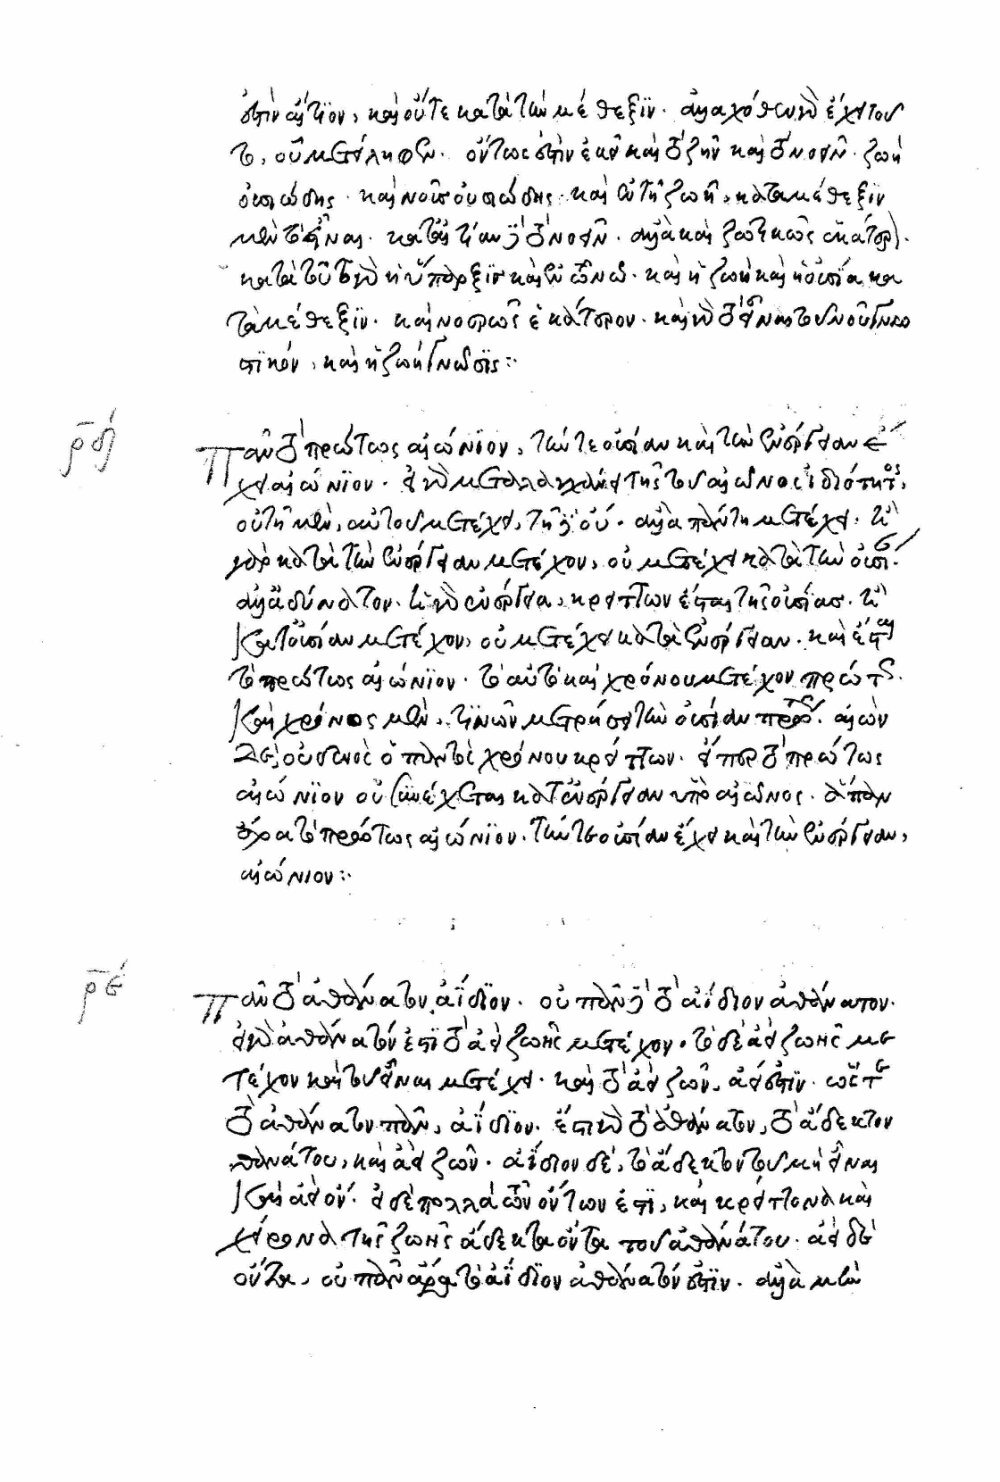 ἐστὶν αἴτιον, καὶ οὔτε κατὰ τὴν μέθεξϊν· ἀλλαχόθεν γὰρ ἔχει τοῦ
το, οὗ μετείληφεν· οὕτως ἐστὶν ἐκεῖ καὶ τὸ ζῆν καὶ τὸ νοεῖν· ζωὴ
οὐσιώδης· καὶ νοῦς οὐσιώδης· καὶ ἐν τῇ ζωῇ, κατὰ μέθεξϊν
μὲν τὸ εἶναι· κατ' αἰτίαν δὲ τὸ νοεῖν· ἀλλὰ καὶ ζωτικῶς ἑκάτερον·
κατὰ τοῦτο γὰρ ἡ ὕπαρξϊς καὶ ἐν τῷ νῷ· καὶ ἡ ζωὴ καὶ ἡ οὐσία κα
τὰ μέθεξϊν· καὶ νοερῶς ἑκάτερον· καὶ γὰρ τὸ εἶναι τοῦ νοῦ γνωσ
τϊκόν, καὶ ἡ ζωὴ γνῶσϊς:
ρδʹ Πᾶν τὸ πρώτως αἰώνϊον, τήν τε οὐσίαν καὶ τὴν ἐνέργειαν ἔ
χει αἰώνϊον· εἰ γὰρ μεταλαγχάνει τῆς τοῦ αἰῶνος ἰδιότητος,
οὐ τῇ μὲν, αὐτοῦ μετέχει, τῇ δὲ οὔ· ἀλλὰ πάντη μετέχει· ἢ
γὰρ κατὰ τὴν ἐνέργειαν μετέχον, οὐ μετέχει κατὰ τὴν οὐσίαν·
ἀλλ' ἀδύνατον· ἡ γὰρ ἐνέργεια, κρείττων ἔσται τῆς οὐσίας· ἢ
κατ' οὐσίαν μετέχον, οὐ μετέχει κατὰ ἐνέργειαν· καὶ ἔσται
τὸ πρώτως αἰώνϊον· τὸ αὐτὸ καὶ χρόνου μετέχον πρώτως·
καὶ χρόνος μὲν, τϊνῶν μετρήσει τὴν οὐσίαν πρώτως· αἰὼν
δὲ, οὐδενὸς ὁ παντὸς χρόνου κρείττων· εἴπερ τὸ πρώτως
αἰώνϊον οὐ συνέχεται κατ' ἐνέργειαν ὑπὸ αἰῶνος· ἅπαν
ἄρα τὸ πρώτως αἰώνϊον, τήν τε οὐσίαν ἔχει καὶ τὴν ἐνέργειαν,
αἰώνιον:
ρεʹ Πᾶν τὸ ἀθάνατον, ἀΐδϊον· οὐ πᾶν δὲ τὸ ἀΐδιον ἀθάνατον·
εἰ γὰρ ἀθάνατόν ἐστϊ τὸ ἀεὶ ζωῆς μετέχον· τὸ δὲ ἀεὶ ζωῆς με
τέχον καὶ τοῦ εἶναι μετέχει· καὶ τὸ ἀεὶ ζῶν, ἀεί ἐστϊν· ὥστε
τὸ ἀθάνατον πᾶν, ἀΐδϊον· ἔστι γὰρ τὸ ἀθάνατον, τὸ ἄδεκτον
θανάτου, καὶ ἀεὶ ζῶν· ἀΐδιον δέ, τὸ ἄδεκτον τοῦ μὴ εἶναι
καὶ ἀεὶ ὄν· εἰ δὲ πολλὰ τῶν ὄντων ἐστϊ, καὶ κρείττονα καὶ
χείρονα τῆς ζωῆς ἄδεκτα ὄντα τοῦ ἀθανάτου· ἀεὶ δὲ
ὄντα, οὐ πᾶν ἄρα τὸ ἀΐδϊον ἀθάνατόν ἐστϊν· ἀλλὰ μὴν